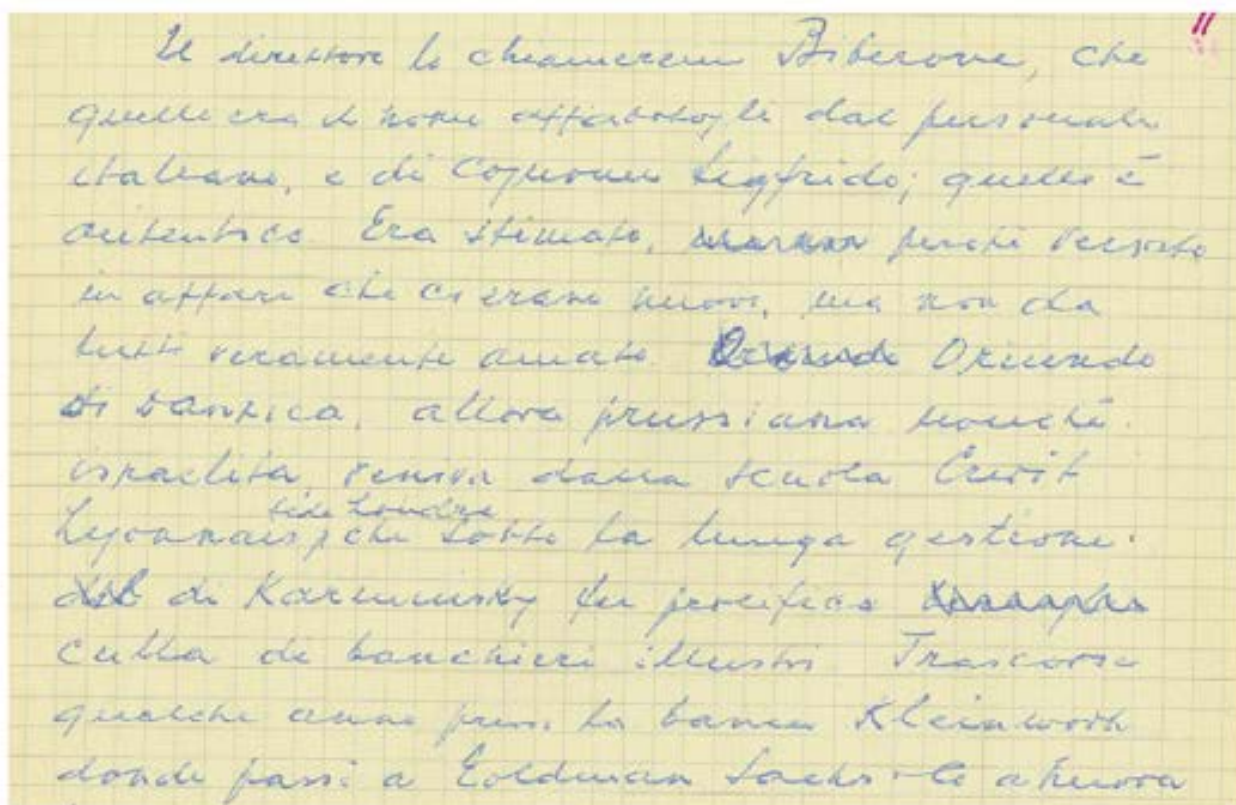 11
Il direttore lo chiameremo Biberone, che
quello era il nome affibbiatogli dal personale
italiano, e di Cognome Sigfrido; quello è
autentico. Era stimato, perché versato
in affari che ci erano nuovi, ma non da
tutti veramente amato. Oriundo
di Danzica, allora prussiana nonché
israelita, veniva dalla scuola Credit
Lyonnais, che sotto la lunga gestione
di fu prolifica
culla di banchieri illustri. Trascorse
qualche anno presso la banca Kleinwort
donde passò a Goldman Sachs